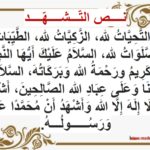 نــص التـشـهـد
التَّحِيَّاتُ لله، الزَّكِيَّاتُ لله، الطَّيِّبَاتُ
الصَّلَوَاتُ لله، السَّلاَمُ عَلَيْكَ أَيُّهَا النَّبِيُّ
الكَرِيمُ وَرَحْمَةُ الله وَبَرَكَاتُهُ، السَّلاَمُ
عَلَيْنَا وَعَلَى عِبَادِ الله الصَّالِحِينَ، أَشْهَدُ
أَنْ لاَ إِلَهَ إِلاَّ الله وَأَشْهَدُ أَنَّ مُحَمَّدًا عَبْدُهُ
وَرَسُــولُــهُ.